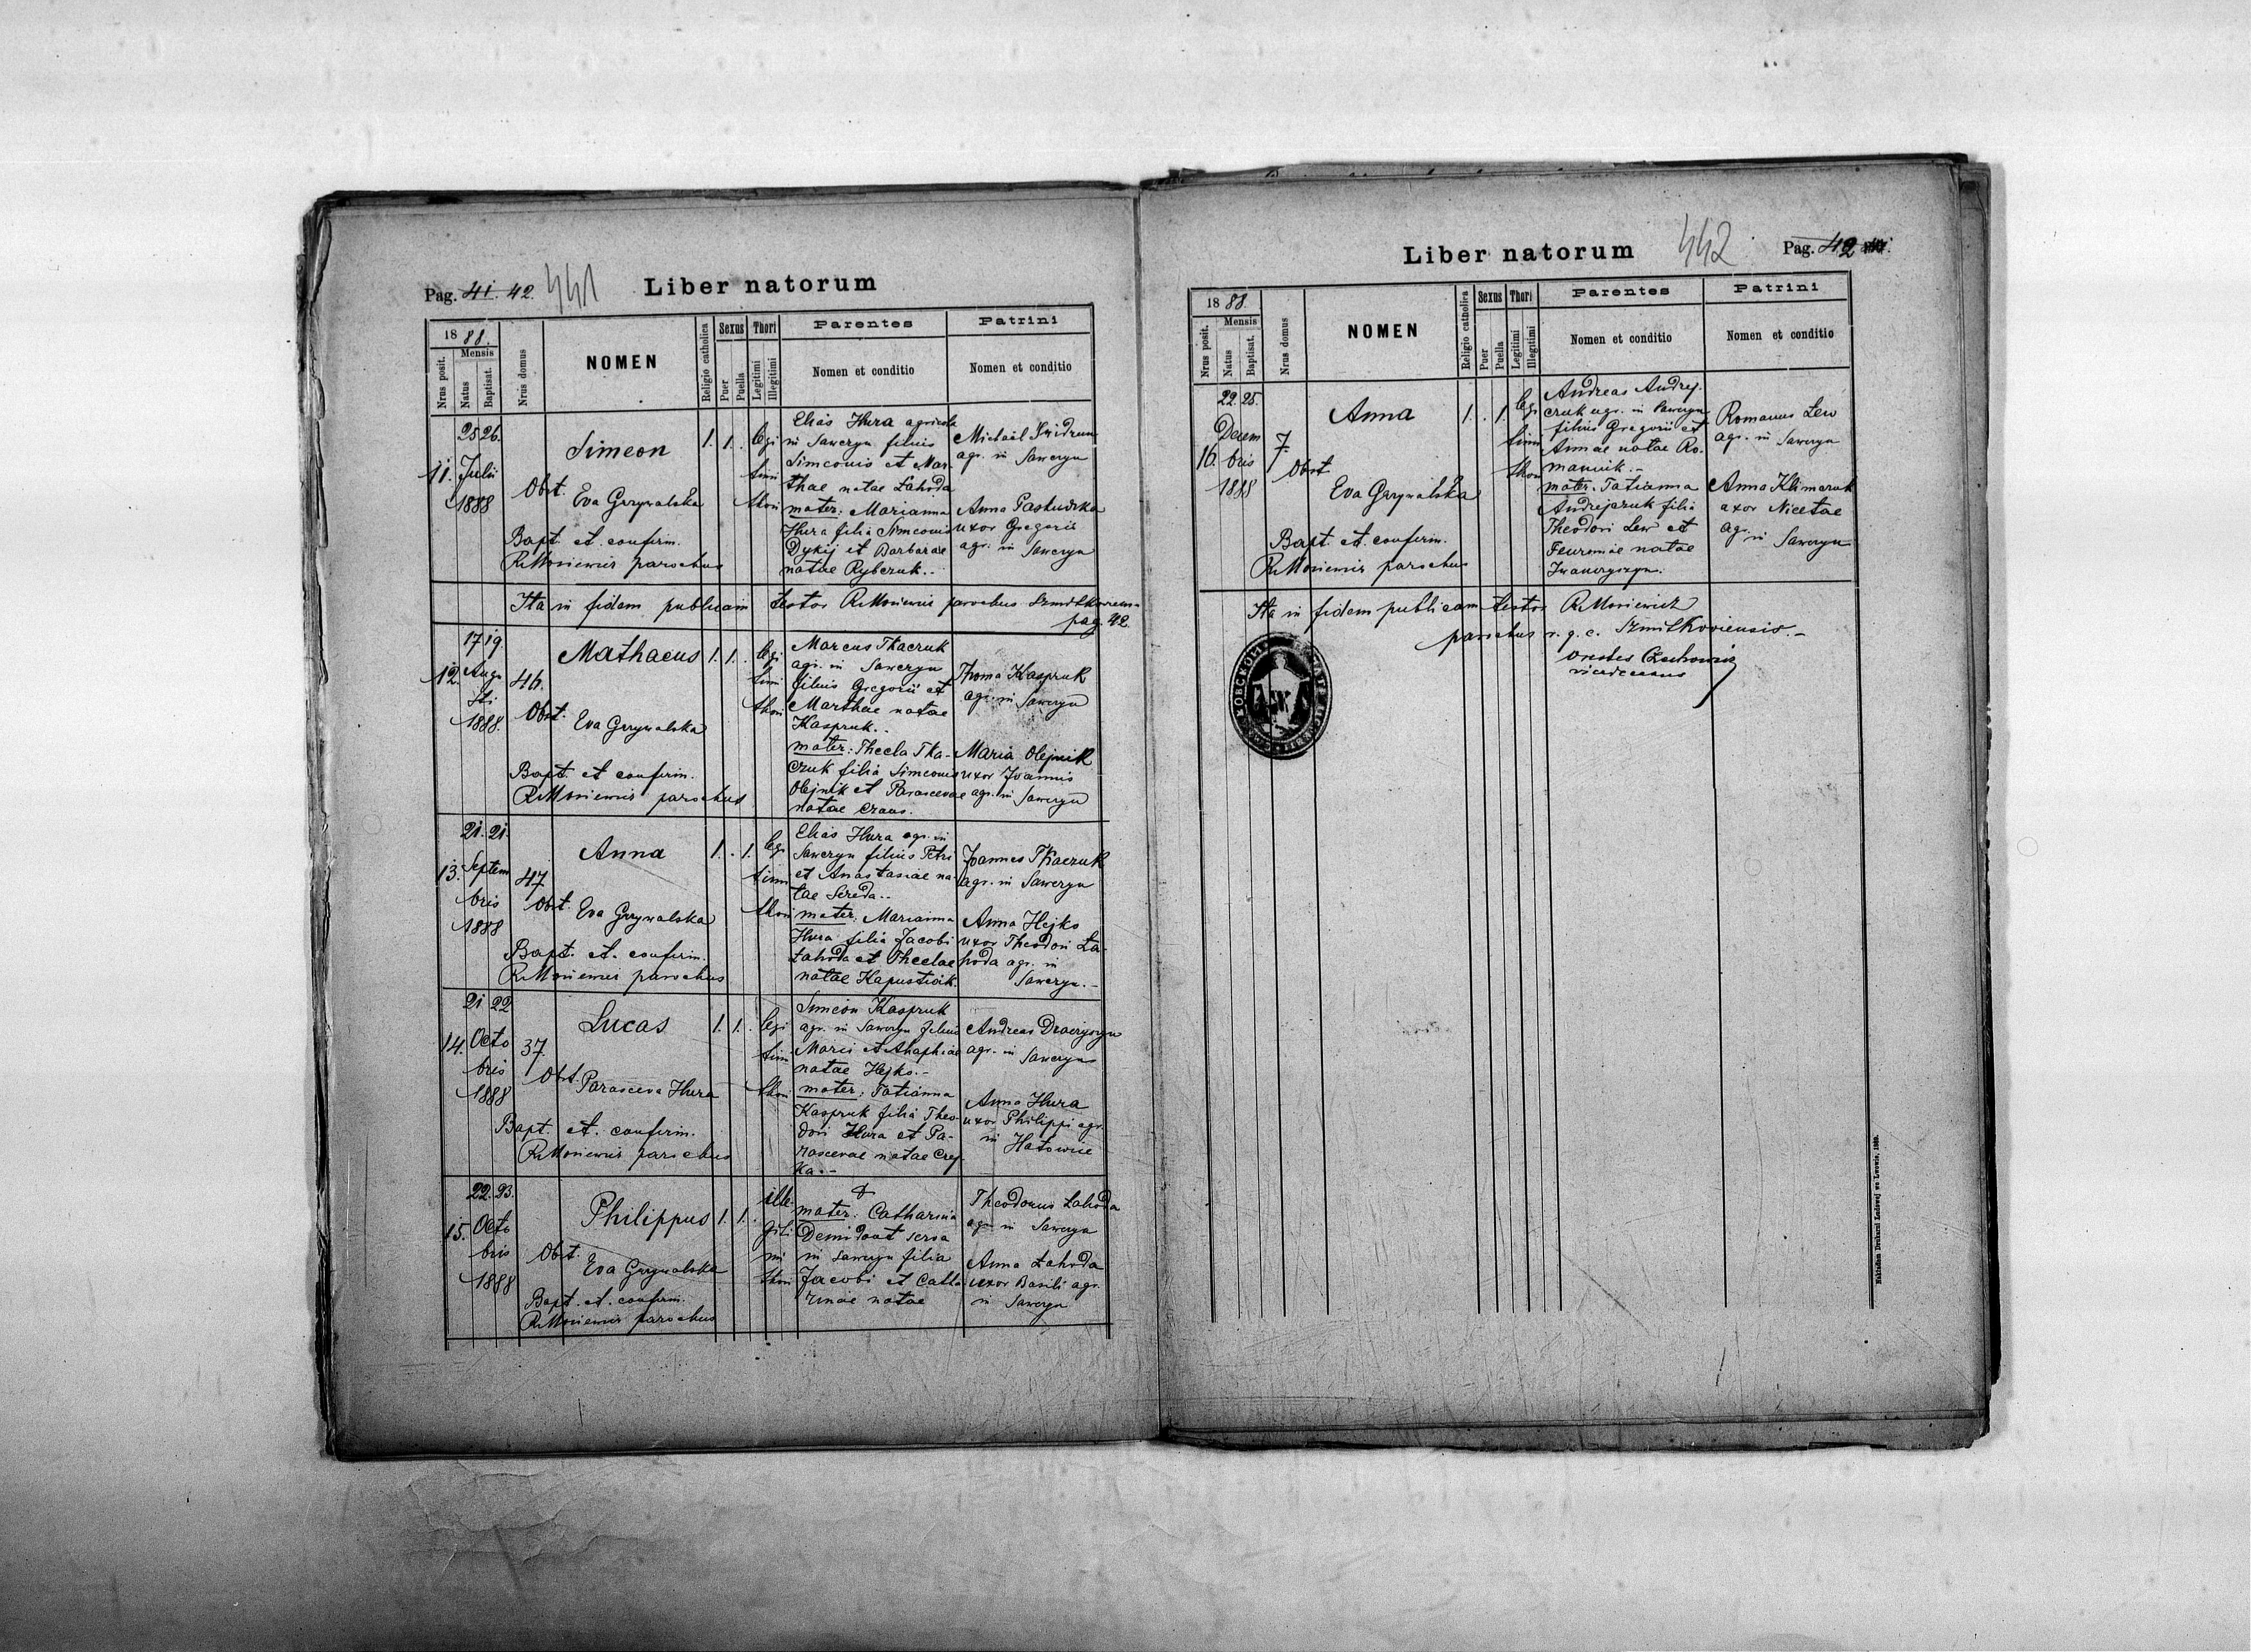 Pag. 41. 42. 441 Liber natorum
1888.
Nrus posit.
Mensis
Natus
Baptisat.
Nrus domus
NOMEN
Religio catholica
Sexus
Puer
Puella
Thori
Legitimi
Illegitimi
Parentes
Nomen et conditio
Patrini
Nomen et conditio
11.
25 26.
Julii
1888
Simeon
Obst. Eva Grywalska
Bapt. et. confirm.
parochus
1. 1. .
legi
timi
thori
Elias Hura agricola
in Saweryn filius
Simeonis et Mar-
thae natae Lahoda
mater: Marianna
Hura filia Simeonis
Dykij et Barbarae
natae Ryberuk..
Michaël
agr. in Saweryn
Anna
uxor Gregorii
agr. in Saweryn
Ita in fidem publicam testor parochus
pag. 42.
12.
17 19.
Augu
sti
1888.
46.
Mathaeus
Obst. Eva Grywalska
Bapt. et confirm.
parochus
1. 1. .
legi
timi
thori
Marcus Tkaczuk
agr. in Saweryn
filius Gregorii et
Marthae natae
Kaspruk..
mater: Thecla Tka-
czuk filia Simeonis
Olejnik et Parascevae
natae Craus.
Thoma Kaspruk
agr. in Saweryn
Maria Olejnik
uxor Joannis
agr. in Saweryn
13.
21. 21.
Septem
bris
1888
47
Anna
Obst. Eva Grywalska
Bapt. et. confirm.
parochus
1. . 1.
legi
timi
thori
Elias Hura agr. in
Saweryn filius Petri
et Anastasiae na-
tae Sereda..
mater: Marianna
Hura filia Jacobi
Lahoda et Theclae
natae Kapustiak.
Joannes Tkaczuk
agr. in Saweryn
Anna Hejko
uxor Theodori La-
hoda agr. in
Saweryn.-
14.
21 22
Octo
bris
1888
37.
Lucas
Obst. Parasceva Hura
Bapt. et. confirm.
parochus
1. 1. .
legi
timi
thori
Simeon Kaspruk
agr. in Saweryn filius
Marci et Ahaphiae
natae Hejko.-
mater: Tatianna
Kaspruk filia Theo-
dori Hura et Pa-
rascevae natae Crej-
ka.-
Andreas
agr. in Saweryn
Anna Hura
uxor Philippi agr.
in Hatowice
15.
22. 23.
Octo
bris
1888
Philippus
Obst. Eva Grywalska
Bapt. et. confirm.
parochus
1. 1. .
ille-
giti
mi
thori
mater: Catharina
serva
in Saweryn filia
Jacobi et Catha
rinae natae
Theodorus Lahoda
agr. in Saweryn
Anna Lahoda
uxor Basili agr.
in Saweryn
Liber natorum 442 Pag. 42
1888.
Nrus posit.
Mensis
Natus
Baptisat.
Nrus domus
NOMEN
Religio catholica
Sexus
Puer
Puella
Thori
Legitimi
Illegitimi
Parentes
Nomen et conditio
Patrini
Nomen et conditio
16.
22. 25.
Decem
bris
1888
7.
Anna
Obst.
Eva Grywalska
Bapt. et. confirm.
parochus
1. . 1.
legi
timi
thori
Andreas Andrej-
czuk agr. in Saweryn
filius Gregorii et
Annae natae Ro-
maniuk.-
mater. Tatianna
Andrejczuk filia
Theodori Lew et
natae
Romanus Lew
agr. in Saweryn
Anna Klimczuk
uxor Nicetae
agr. in Saweryn
Ita in fidem publicam testor
parochus r. g. c.
Orestes
vicedecanus
Nakładem Drukarni Ludowej we Lwowie, 1889.